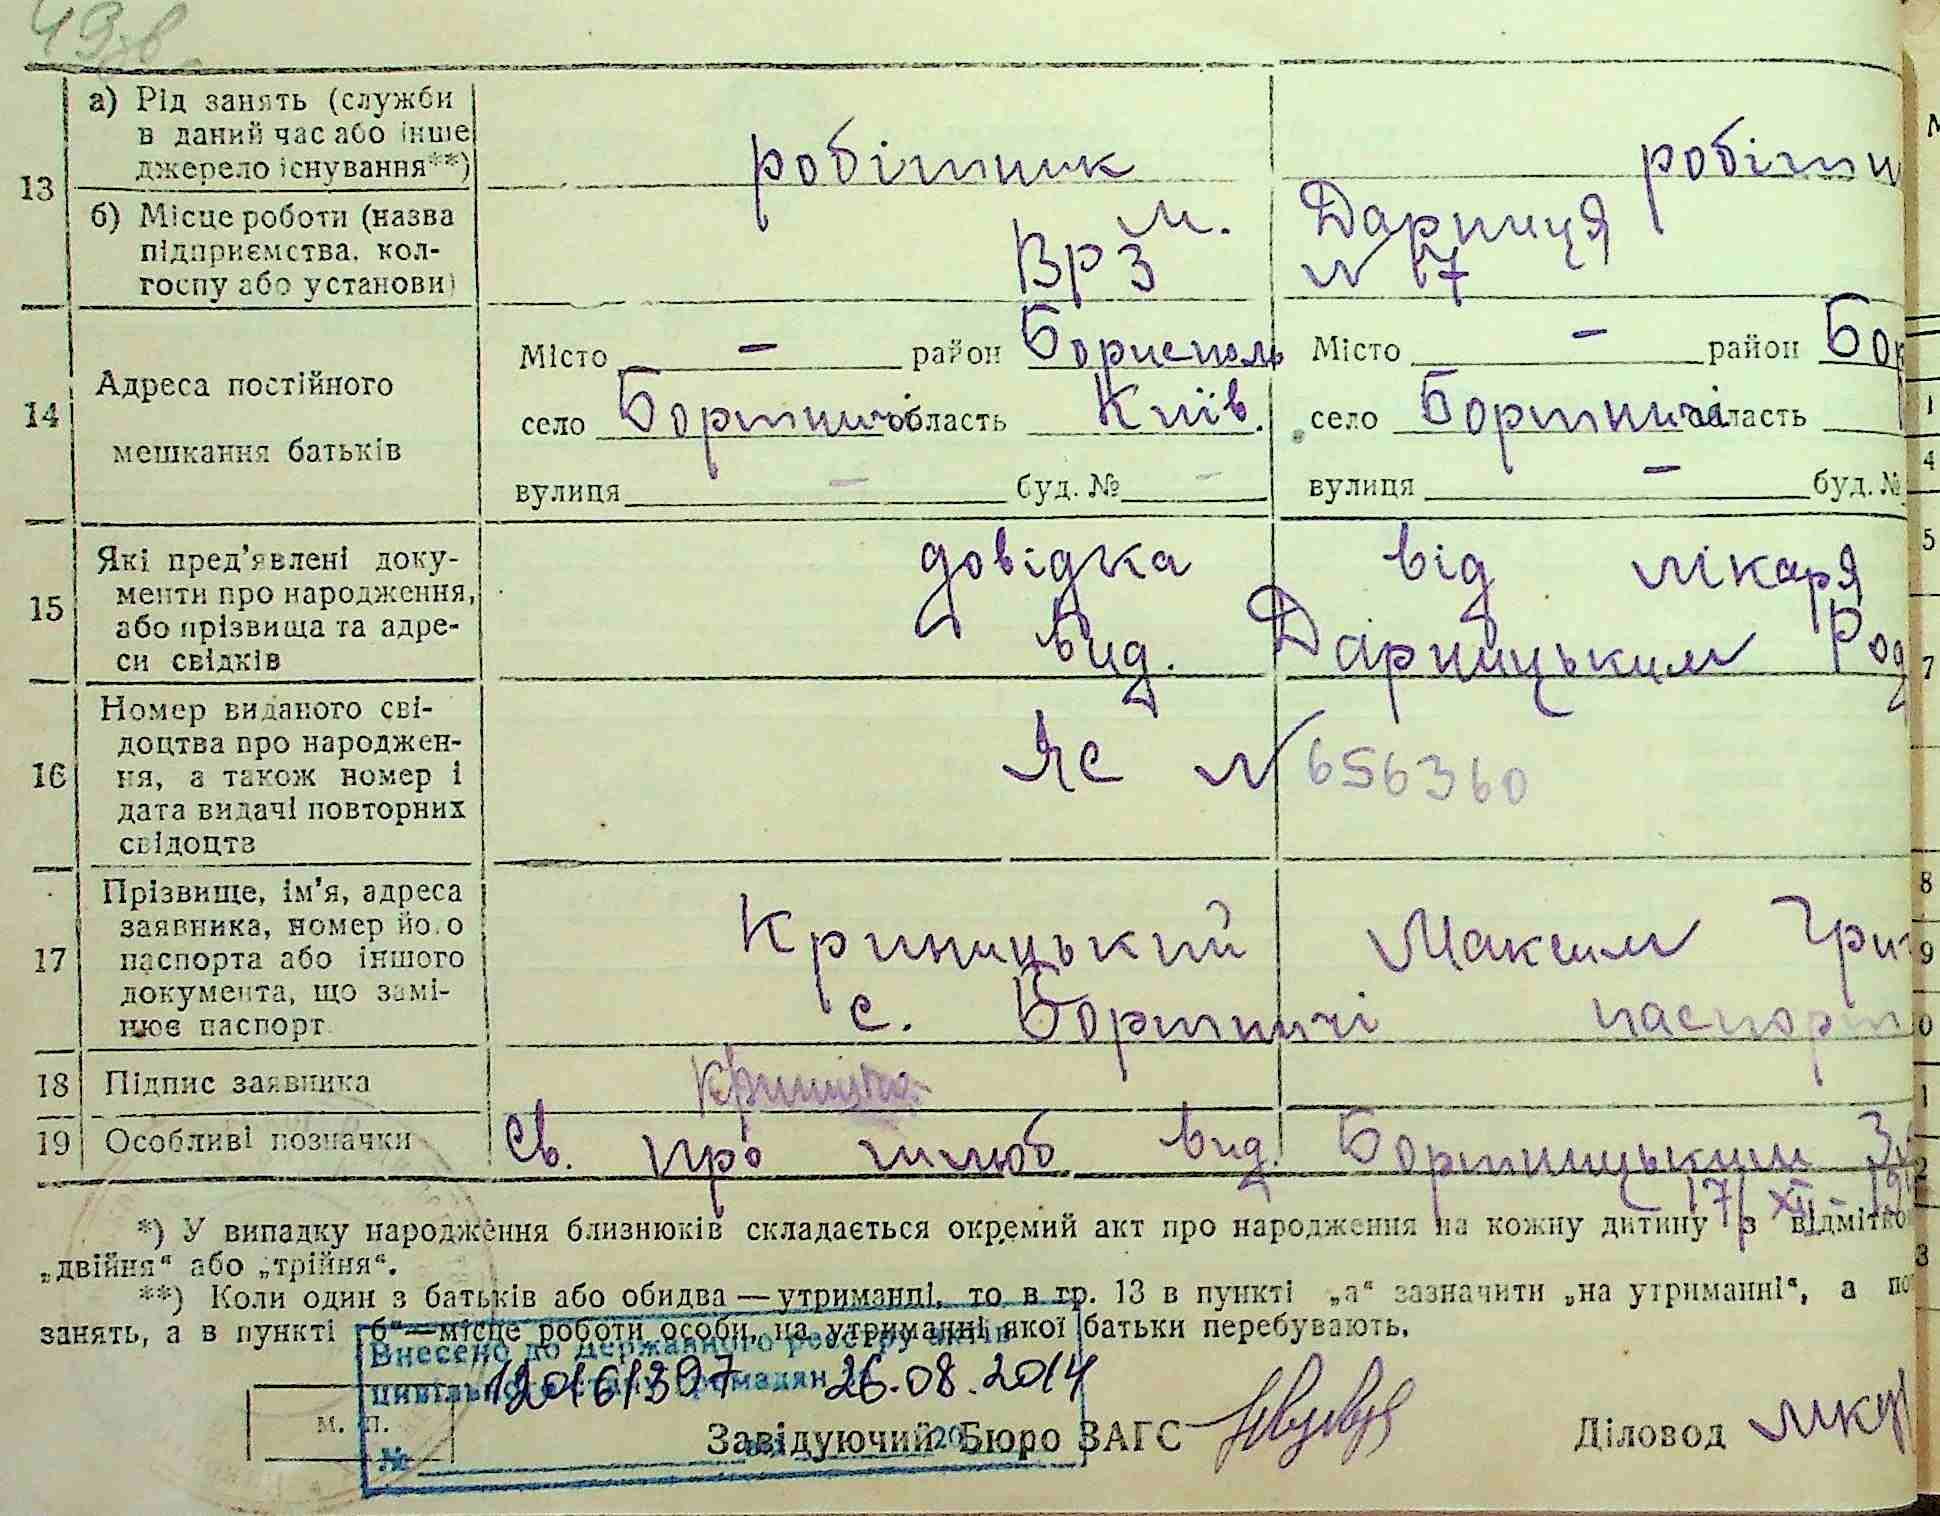 49зв
13 а) Рід занять (служби в даний час або інше джерело існування**) робітник робітни
б) Місце роботи (назва підприємства, колгоспу або установи) м. Дарниця
ВРЗ № 17
14 Адреса постійного мешкання батьків
Місто — район Бориспіль Місто — район Бор
село Бортничі область Київ. село Бортничі область
вулиця — буд. № — вулиця — буд. №
15 Які пред'явлені доку-
менти про народження,
або прізвища та адре-
си свідків
довідка від лікаря
вид. Дарницьким Род
16 Номер виданого сві-
доцтва про народжен-
ня, а також номер і
дата видачі повторних
свідоцтв
ЯС № 656360
17 Прізвище, ім'я, адреса
заявника, номер його
паспорта або іншого
документа, що замі-
нює паспорт
Криницький Максим Гри
с. Бортничі паспорт
18 Підпис заявника
19 Особливі позначки Св. про шлюб вид. Бортницьким
17/XII
*) У випадку народження близнюків складається окремий акт про народження на кожну дитину з відмітко
„двійня“ або „трійня“.
**) Коли один з батьків або обидва — утриманці, то в гр. 13 в пункті „а“ зазначити „на утриманні“, а по
занять, а в пункті „б“ — місце роботи особи, на утриманні якої батьки перебувають.
Внесено до Державного реєстру актів
цивільного стану громадян
12016397 26.08.2014
М. П.
№ 20
Завідуючий Бюро ЗАГС Діловод